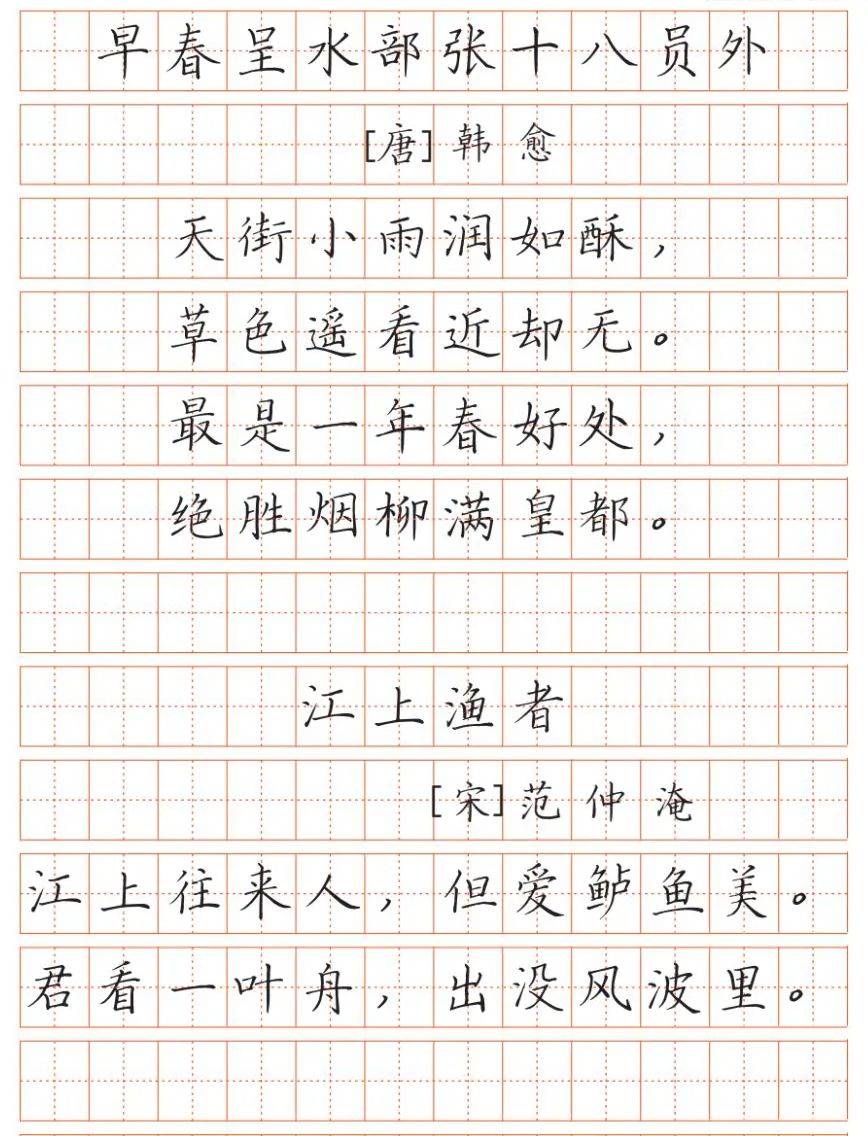 早春呈水部张十八员外
[唐]韩愈
天街小雨润如酥，
草色遥看近却无。
最是一年春好处，
绝胜烟柳满皇都。
江上渔者
[宋]范仲淹
江上往来人，但爱鲈鱼美。
君看一叶舟，出没风波里。